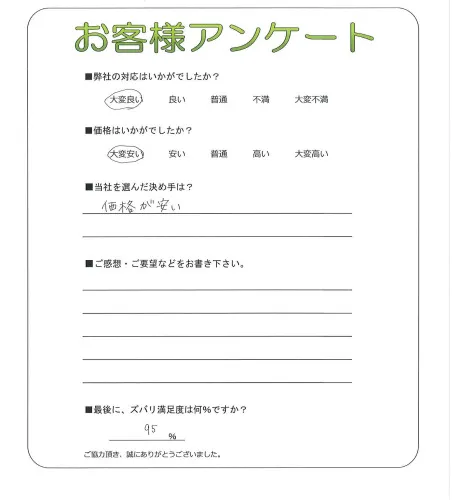 お客様アンケート
■弊社の対応はいかがでしたか？
大変良い 良い 普通 不満 大変不満
■価格はいかがでしたか？
大変安い 安い 普通 高い 大変高い
■当社を選んだ決め手は？
価格が安い
■ご感想・ご要望などをお書き下さい。
■最後に、ズバリ満足度は何％ですか？
95 %
ご協力頂き、誠にありがとうございました。